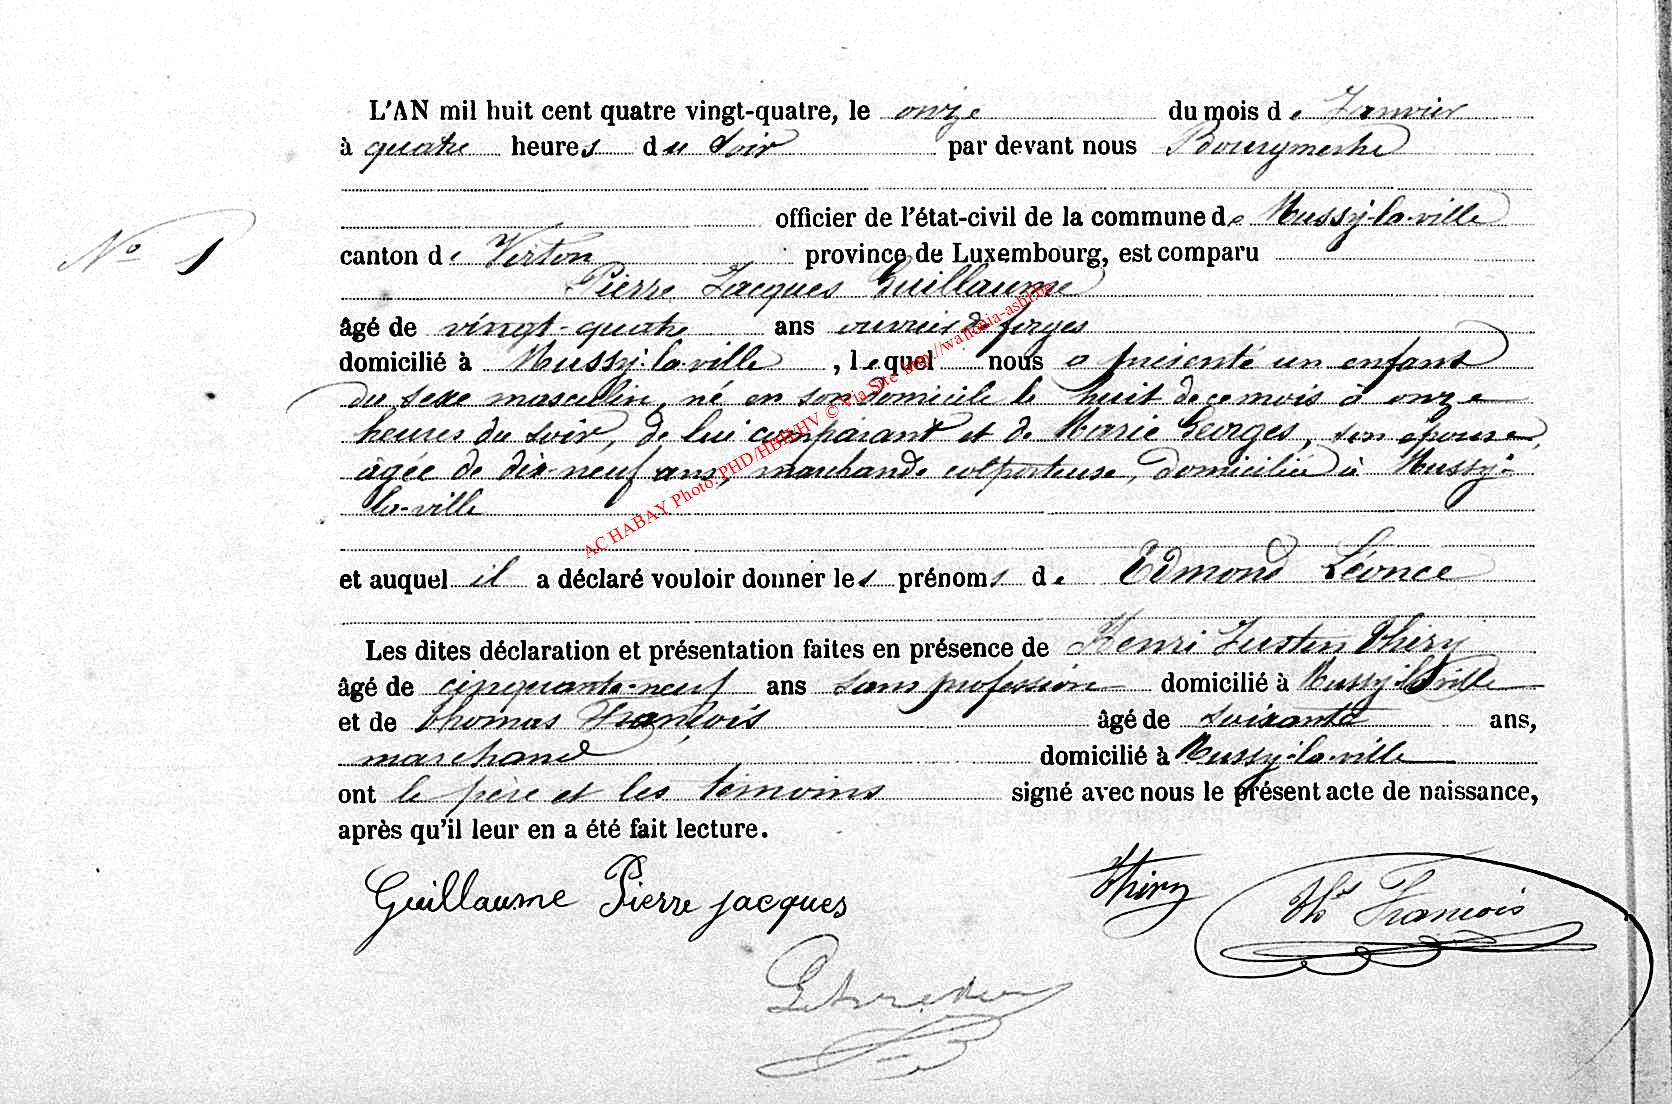 L'AN mil huit cent quatre vingt-quatre, le onze du mois de Janvier
à quatre heures du soir par devant nous Bourgmestre
officier de l'état-civil de la commune de Mussy-la-ville
N° 1
canton de Virton province de Luxembourg, est comparu
Pierre Jacques Guillaume
âgé de vingt-quatre ans ouvrier de forges
domicilié à Mussy-la-ville, lequel nous a présenté un enfant
du sexe masculin, né en son domicile le huit de ce mois à onze
heures du soir, de lui comparant et de Marie Georges, son épouse,
âgée de dix-neuf ans, marchande colporteuse, domiciliée à Mussy-
la-ville
et auquel il a déclaré vouloir donner les prénoms de Edmond Léonce
Les dites déclaration et présentation faites en présence de Henri Justin Thiry
âgé de cinquante-neuf ans sans profession domicilié à Mussy-la-ville
et de Thomas François âgé de soixante ans,
marchand domicilié à Mussy-la-ville
ont le père et les témoins signé avec nous le présent acte de naissance,
après qu'il leur en a été fait lecture.
Guillaume Pierre jacques Thiry Ths François
AC HABAY Photo: PHD/HBH/HV © Via Site http://wallonia-asbl.be